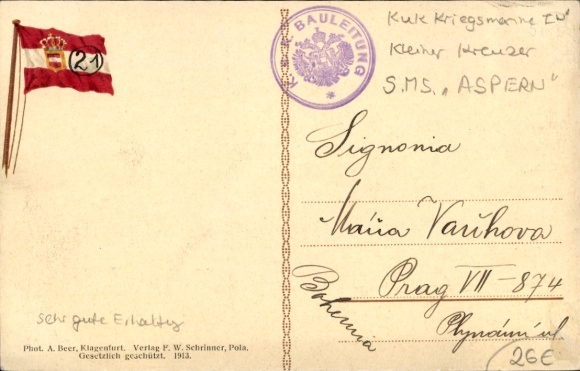 21
K. u. K. BAULEITUNG
KuK Kriegsmarine
Kleiner Kreuzer
S.M.S. „ASPERN"
Signonia
Prag VII - 874
Bohemia
sehr gute Erhaltg
Phot. A. Beer, Klagenfurt. Verlag F. W. Schrinner, Pola.
Gesetzlich geschützt. 1913.
26€